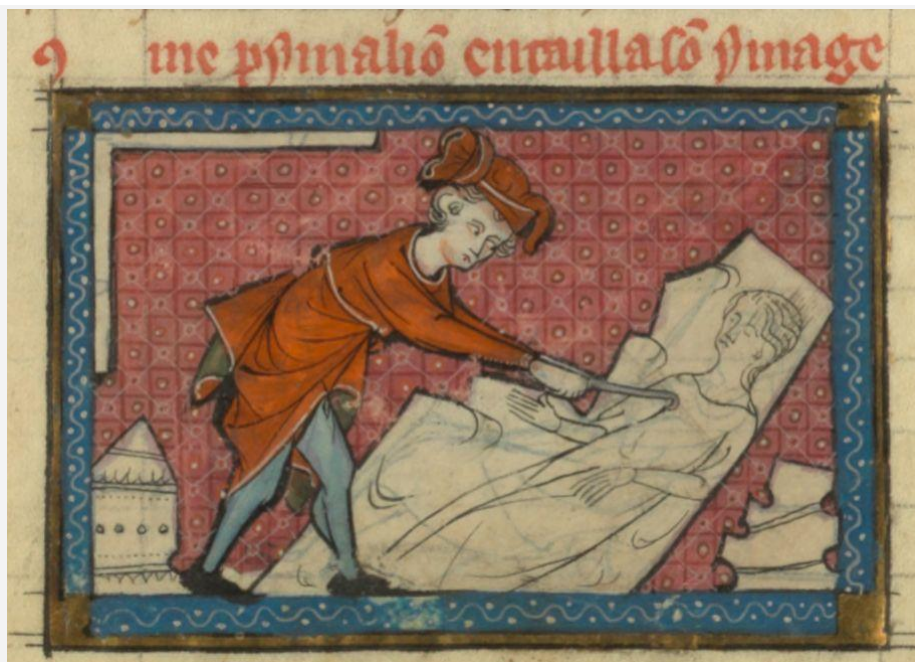 ⁊ me pymaliō entailla sō ymage